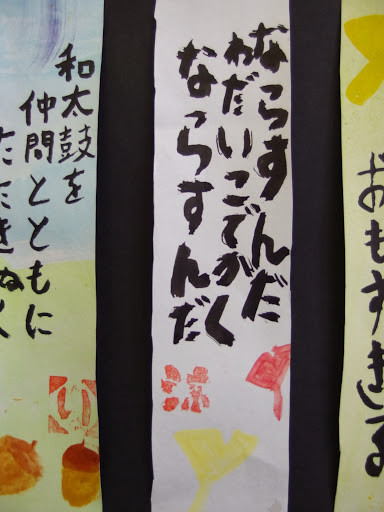 おもすぎる
ならすんだ
わだいこでがく
ならすんだ
和太鼓を
仲間とともに
たたきぬく
り